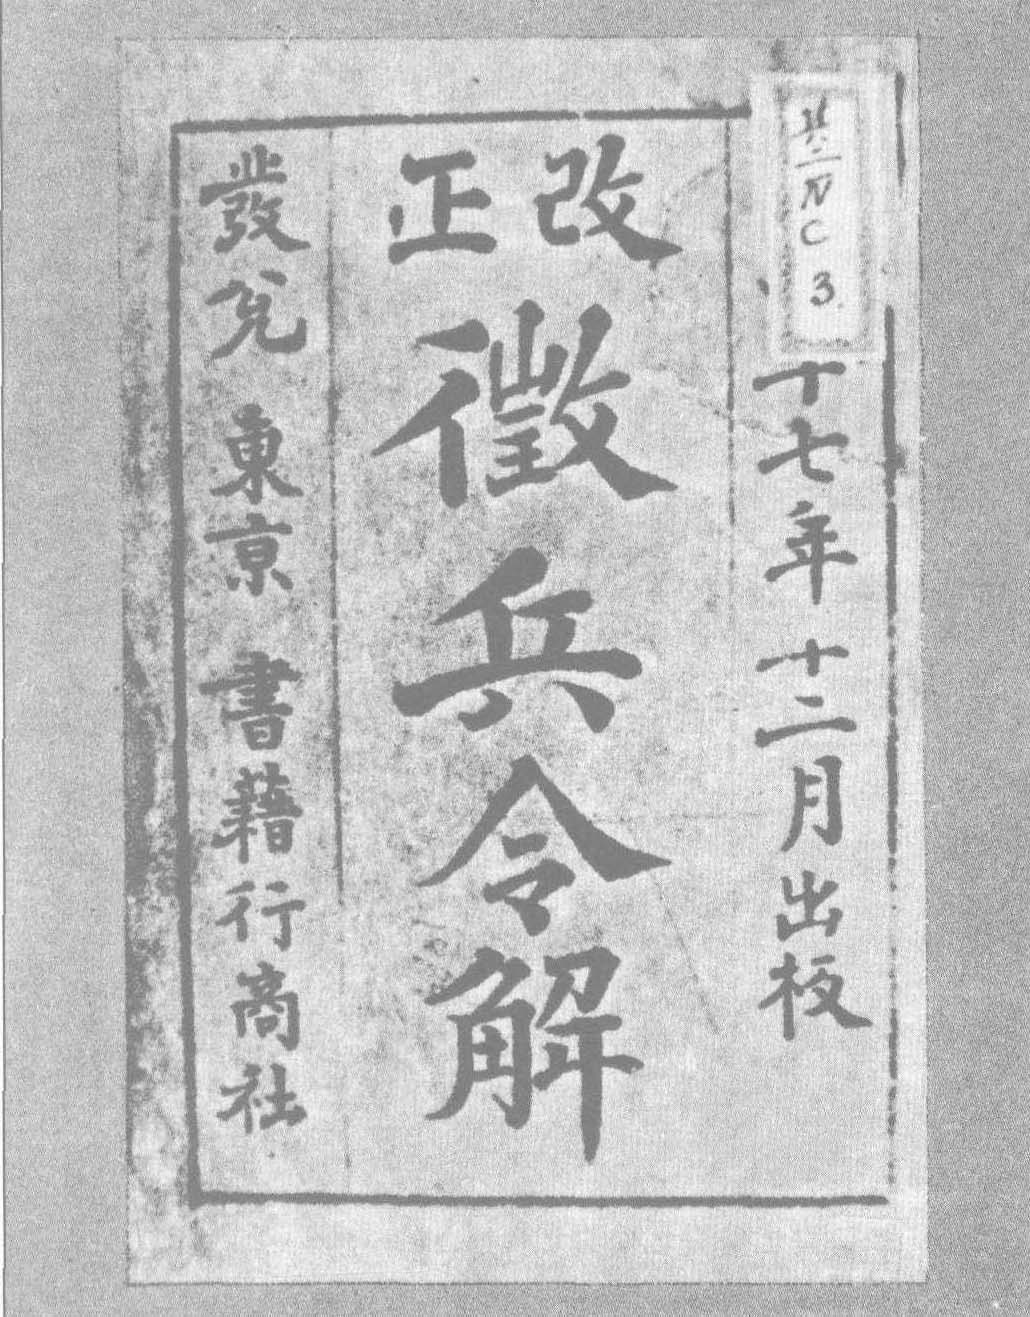 十七年十二月出板
改正
徵兵令解
發兌 東京 書籍行商社
N
C
3